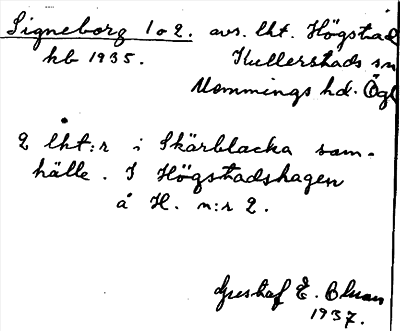 Signeborg 1 o 2. avs. lht. Högstad
hb 1935. Kullerstads sn
Memmings hd. Ögl
2 lht:r i Skärblacka sam-
hälle. I Högstadshagen
å H. n:r 2.
Gustaf E. Bluan
1937.